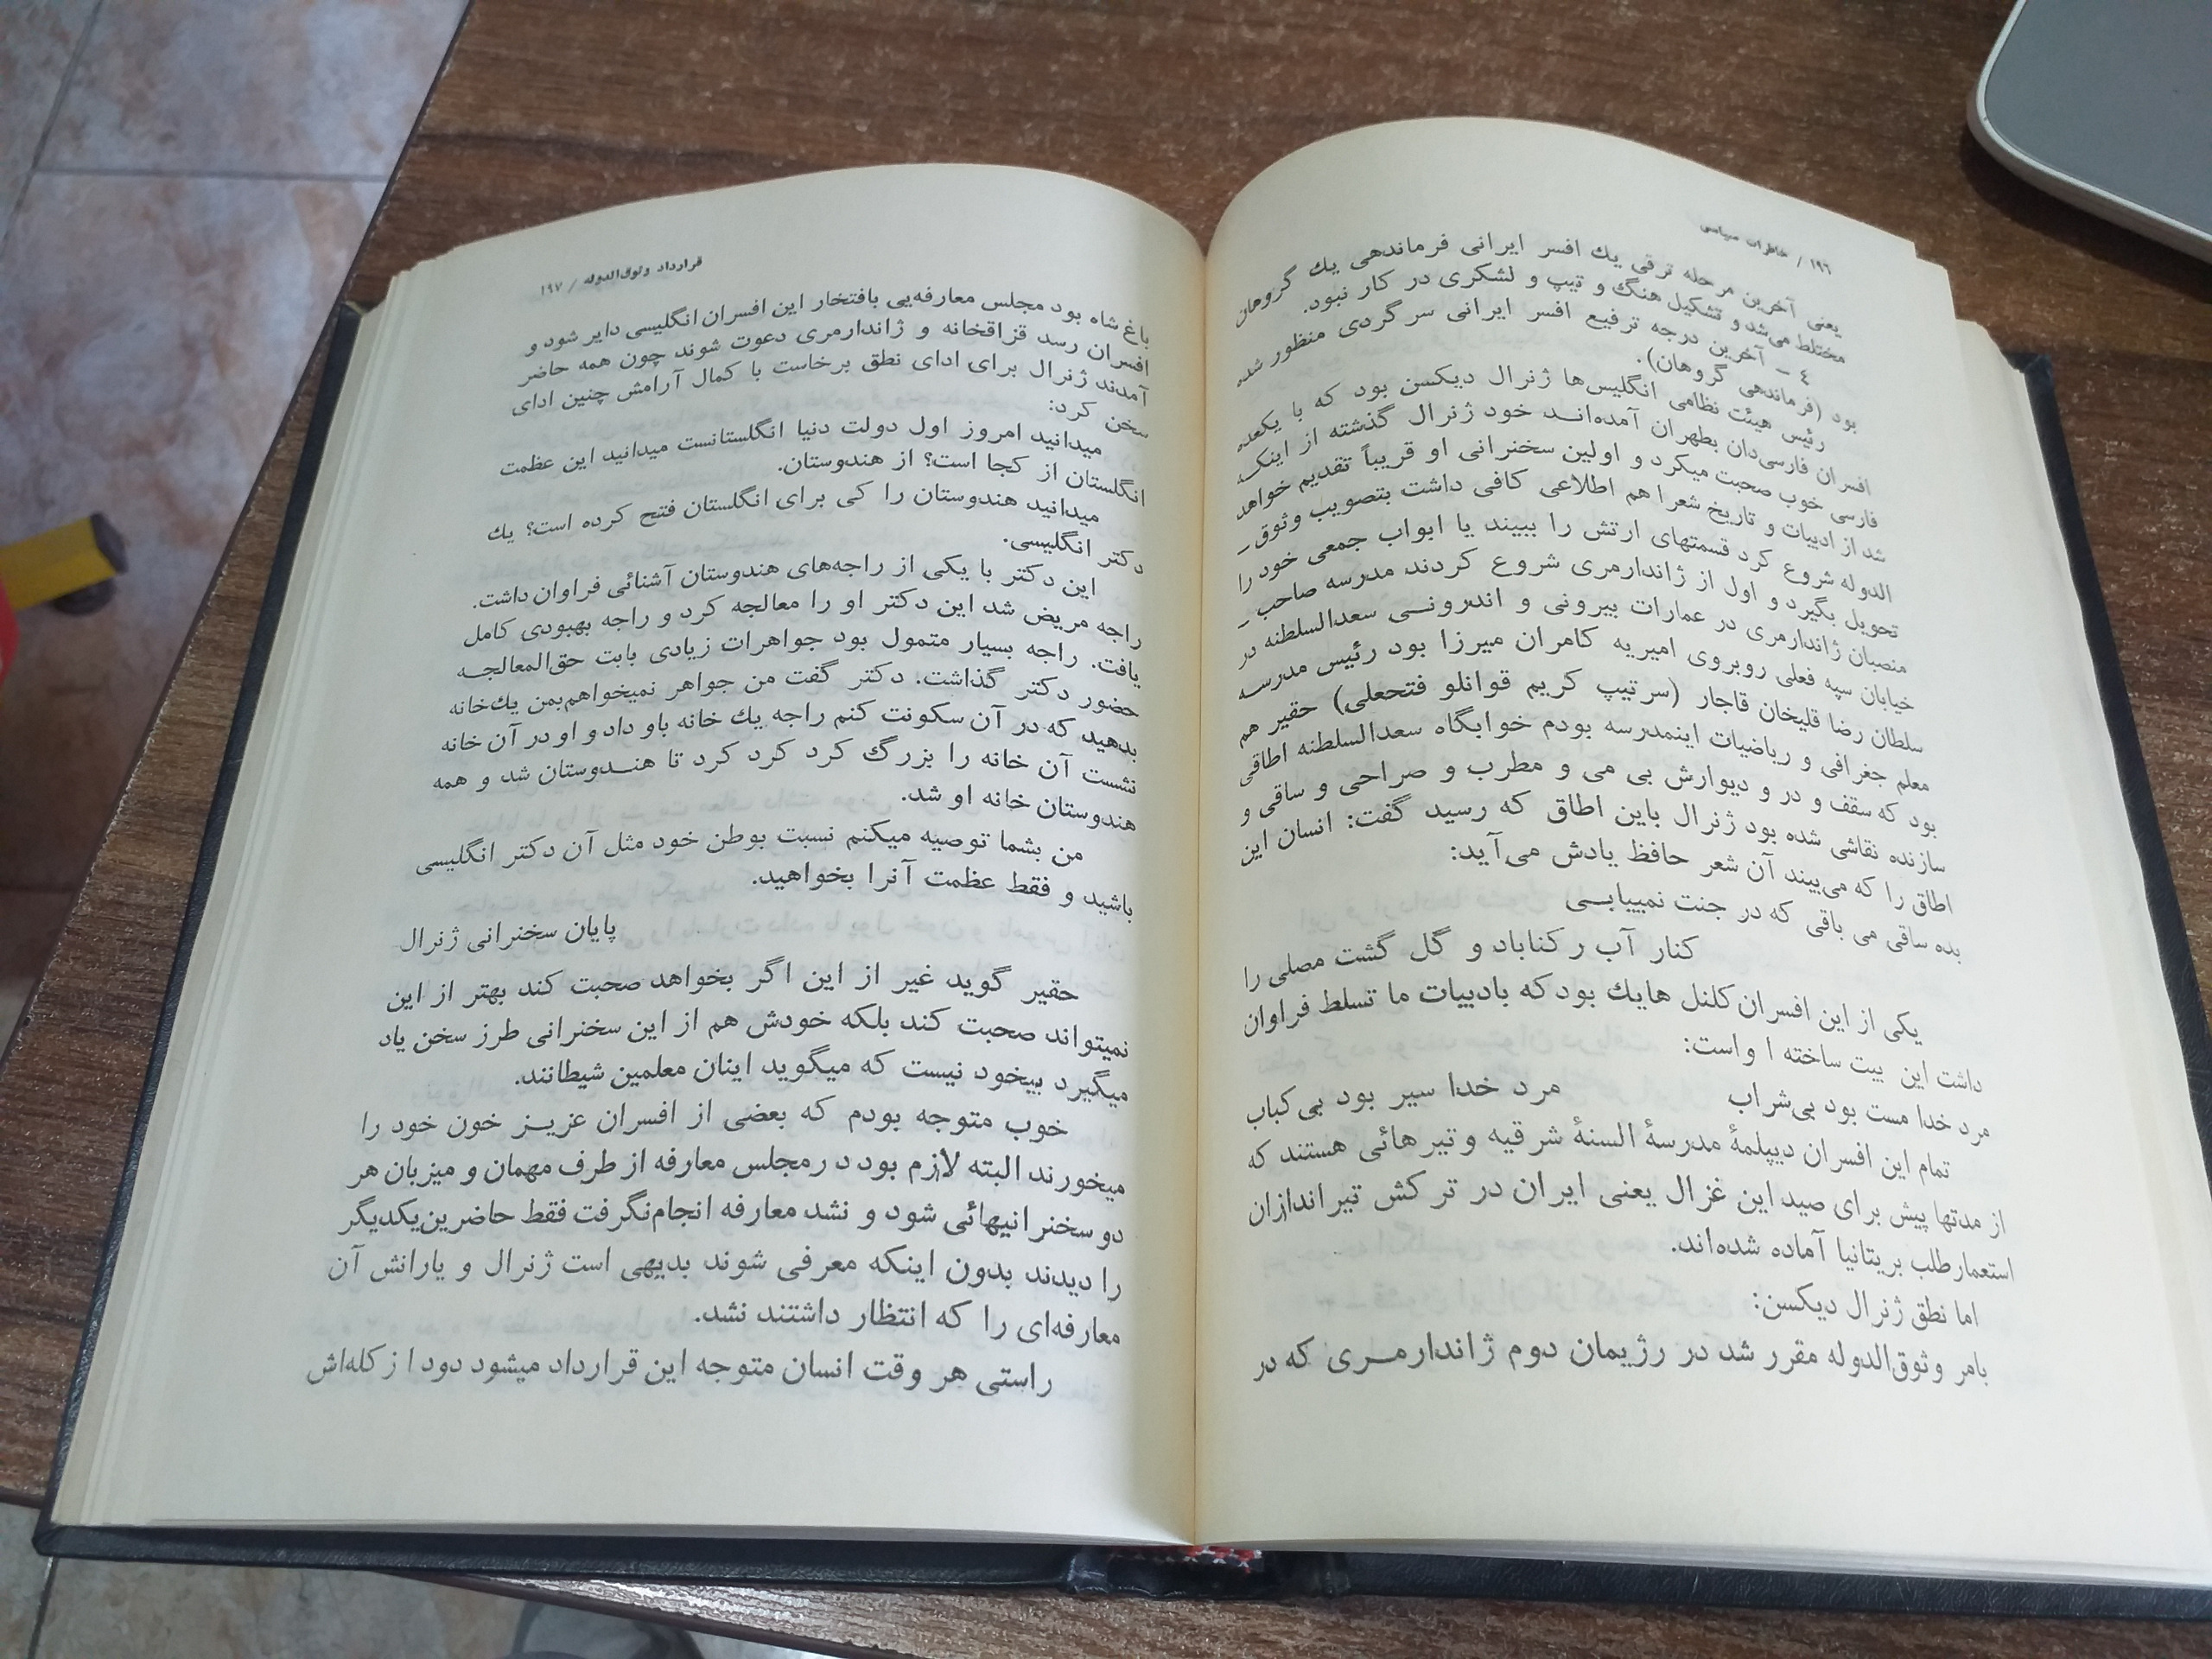 ۱۹۶ / خاطرات سیاسی
یعنی آخرین مرحله ترقی یك افسر ایرانی فرماندهی یك گروهان
مختلط می‌شد و تشکیل هنگ و تیپ و لشکری در کار نبود.
۴ – آخرین درجه ترفیع افسر ایرانی سرگردی منظور شده
بود (فرماندهی گروهان).
رئیس هیئت نظامی انگلیس‌ها ژنرال دیکسن بود که با یکعده
افسران فارسی‌دان بطهران آمده‌انـد خود ژنرال گذشته از اینکـه
فارسی خوب صحبت میکرد و اولین سخنرانی او قریباً تقدیم خواهد
شد از ادبیات و تاریخ شعرا هم اطلاعی کافی داشت بتصویب وثوق–
الدوله شروع کرد قسمتهای ارتش را ببیند یا ابواب جمعی خود را
تحویل بگیرد و اول از ژاندارمری شروع کردند مدرسه صاحب–
منصبان ژاندارمری در عمارات بیرونی و اندرونـی سعدالسلطنه در
خیابان سپه فعلی روبروی امیریه کامران میرزا بود رئیس مدرسـه
سلطان رضا قلیخان قاجار (سرتیپ کریم قوانلو فتحعلی) حقیر هم
معلم جغرافی و ریاضیات اینمدرسه بودم خوابگاه سعدالسلطنه اطاقی
بود که سقف و در و دیوارش بی می و مطرب و صراحی و ساقی و
سازنده نقاشی شده بود ژنرال باین اطاق که رسید گفت: انسان این
اطاق را که می‌بیند آن شعر حافظ یادش می‌آید:
بده ساقی می باقی که در جنت نمییابـی
کنار آب رکناباد و گل گشت مصلی را
یکی از این افسران کلنل هایك بود که بادبیات ما تسلط فراوان
داشت این بیت ساخته اواست:
مرد خدا مست بود بی‌شراب مرد خدا سیر بود بی‌کباب
تمام این افسران دیپلمهٔ مدرسهٔ السنهٔ شرقیه و تیرهائی هستند که
از مدتها پیش برای صید این غزال یعنی ایران در ترکش تیراندازان
استعمارطلب بریتانیا آماده شده‌اند.
اما نطق ژنرال دیکسن:
بامر وثوق‌الدوله مقرر شد در رژیمان دوم ژاندارمـری که در
قرارداد وثوق‌الدوله / ۱۹۷
باغ شاه بود مجلس معارفه‌یی بافتخار این افسران انگلیسی دایر شود و
افسران رسد قزاقخانه و ژاندارمری دعوت شوند چون همه حاضر
آمدند ژنرال برای ادای نطق برخاست با کمال آرامش چنین ادای
سخن کرد:
میدانید امروز اول دولت دنیا انگلستانست میدانید این عظمت
انگلستان از کجا است؟ از هندوستان.
میدانید هندوستان را کی برای انگلستان فتح کرده است؟ یك
دکتر انگلیسی.
این دکتر با یکی از راجه‌های هندوستان آشنائی فراوان داشت.
راجه مریض شد این دکتر او را معالجه کرد و راجه بهبودی کامل
یافت. راجه بسیار متمول بود جواهرات زیادی بابت حق‌المعالجـه
حضور دکتر گذاشت. دکتر گفت من جواهر نمیخواهم بمن یك خانه
بدهید که در آن سکونت کنم راجه یك خانه باو داد و او در آن خانه
نشست آن خانه را بزرگ کرد کرد کرد تا هنـدوستان شد و همه
هندوستان خانه او شد.
من بشما توصیه میکنم نسبت بوطن خود مثل آن دکتر انگلیسی
باشید و فقط عظمت آنرا بخواهید.
پایان سخنرانی ژنرال
حقیر گوید غیر از این اگر بخواهد صحبت کند بهتر از این
نمیتواند صحبت کند بلکه خودش هم از این سخنرانی طرز سخن یاد
میگیرد بیخود نیست که میگوید اینان معلمین شیطانند.
خوب متوجه بودم که بعضی از افسران عزیـز خون خود را
میخورند البته لازم بود در مجلس معارفه از طرف مهمان و میزبان هر
دو سخنرانیهائی شود و نشد معارفه انجام نگرفت فقط حاضرین یکدیگر
را دیدند بدون اینکه معرفی شوند بدیهی است ژنرال و یارانش آن
معارفه‌ای را که انتظار داشتند نشد.
راستی هر وقت انسان متوجه این قرارداد میشود دود از کله‌اش